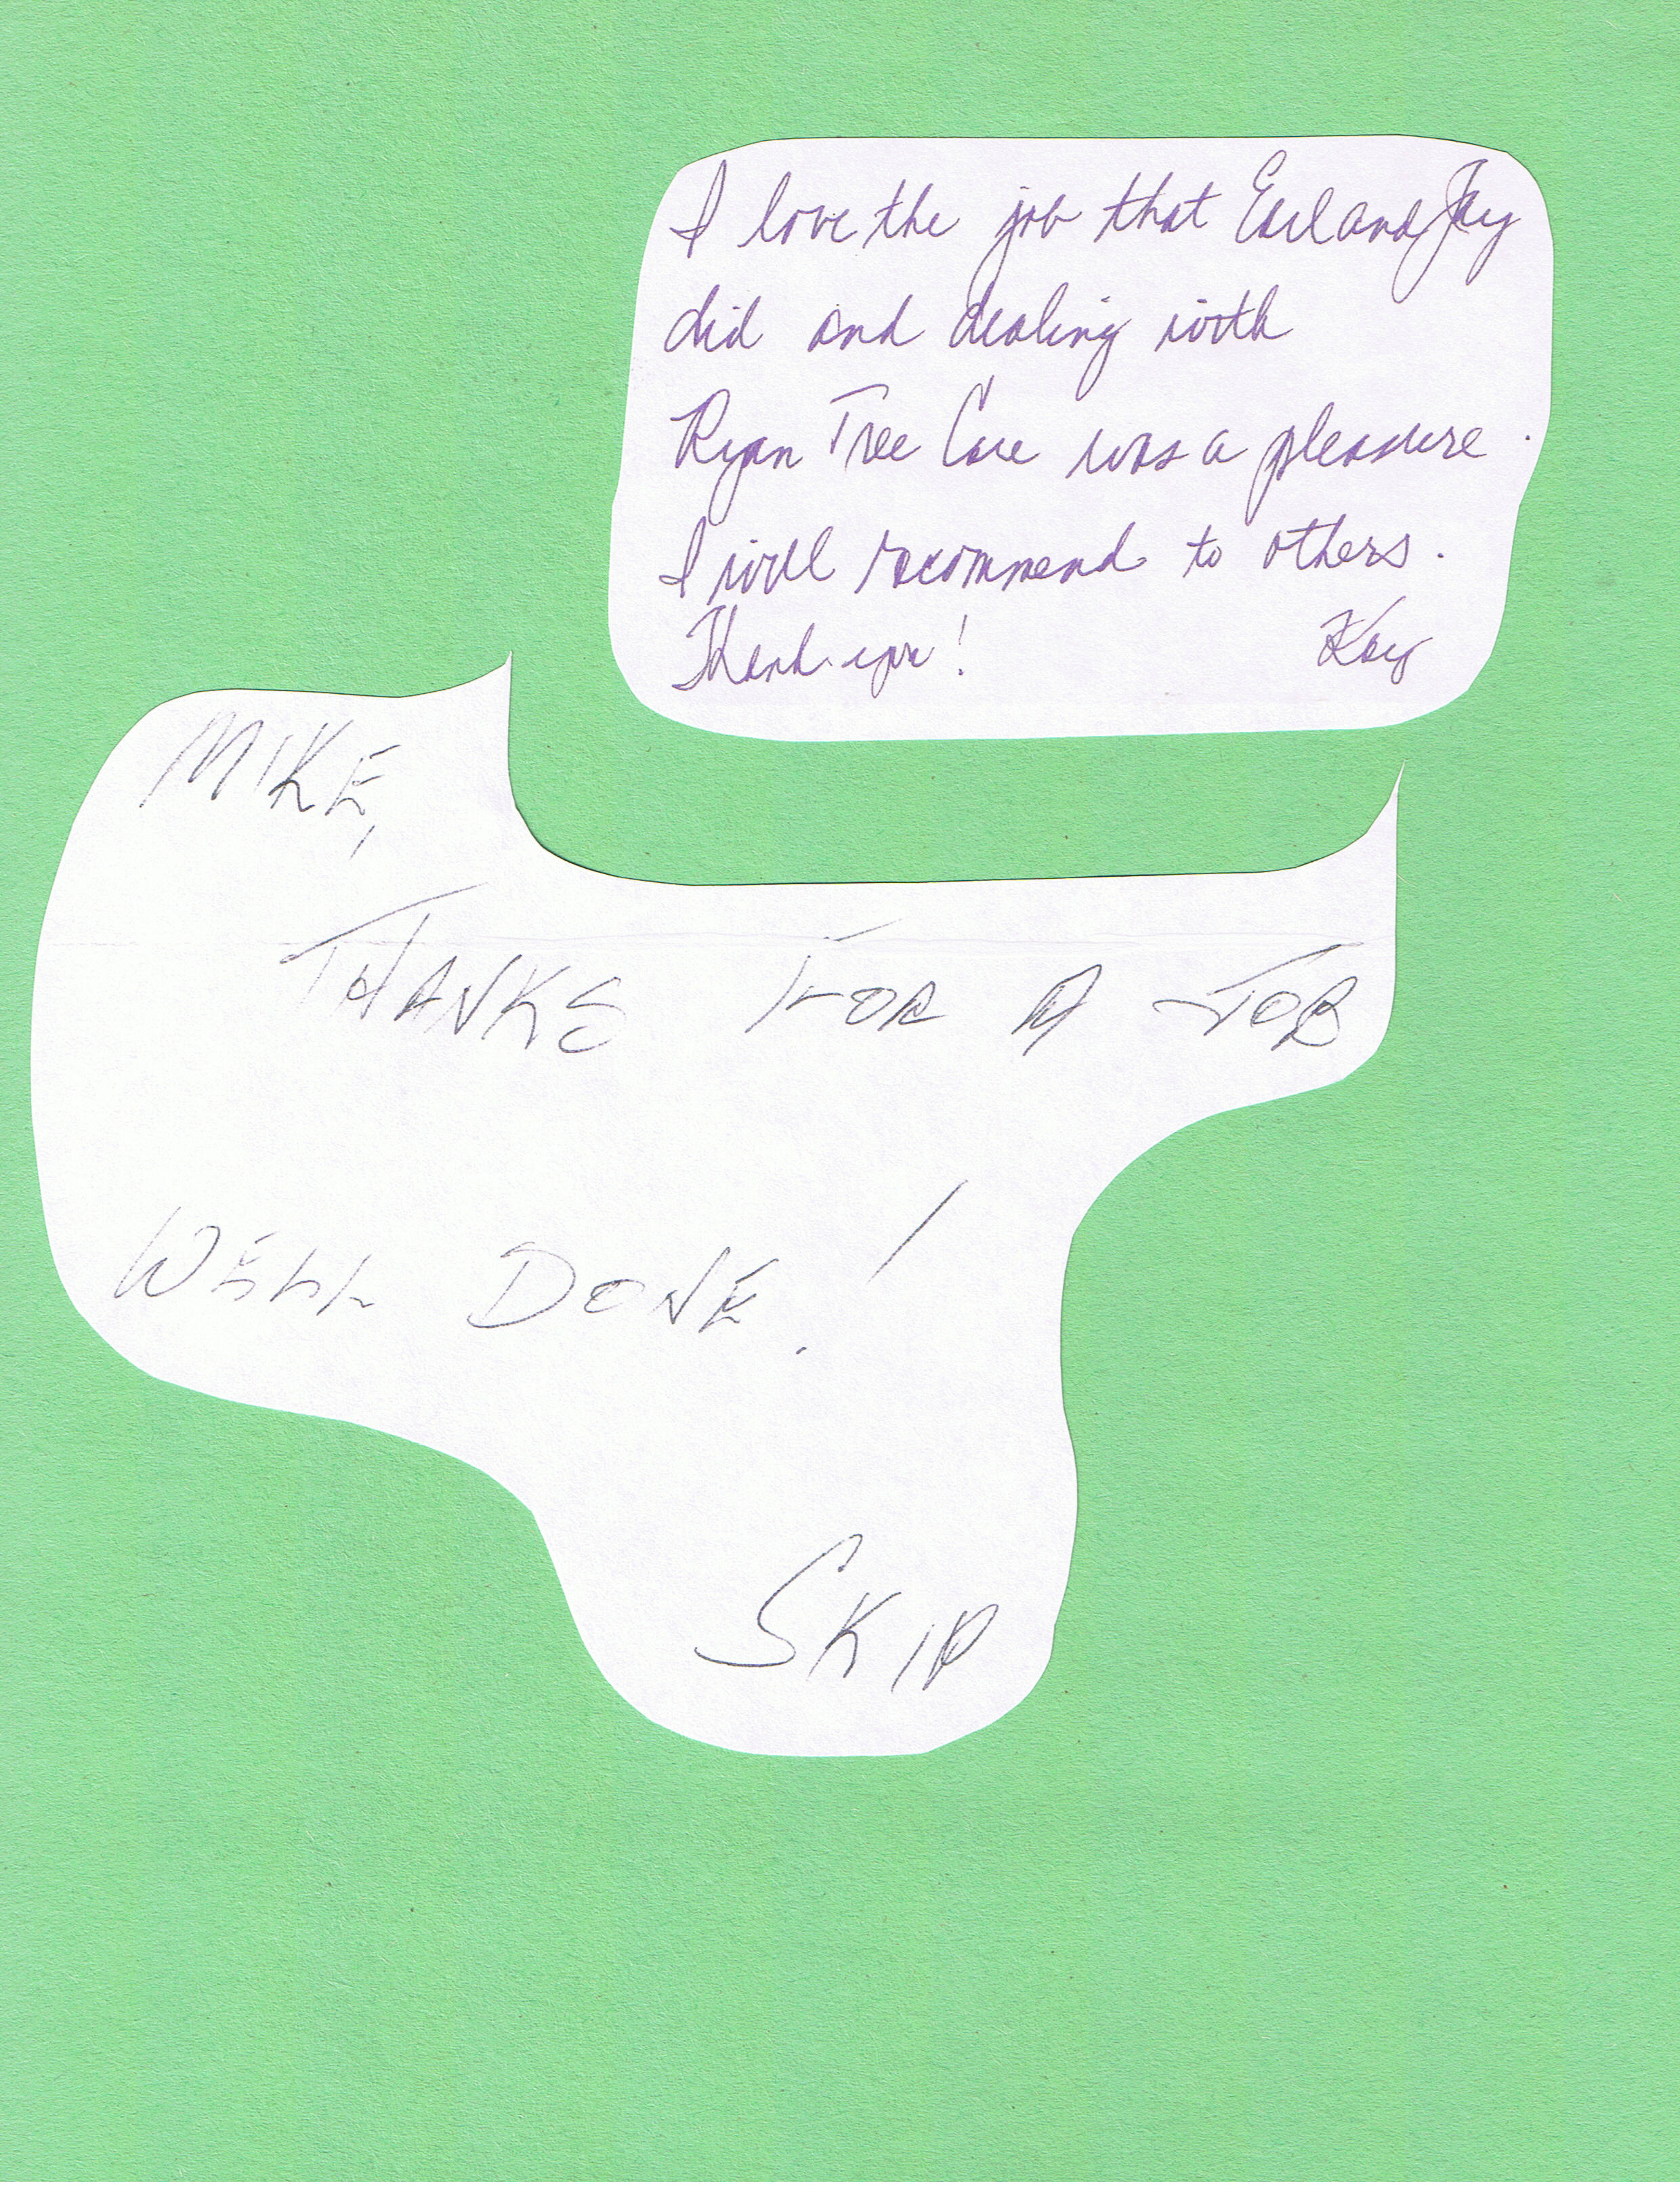 I love the job that Earl and Jay
did and dealing with
Ryan Tree Care was a pleasure.
I will recommend to others.
Thank you! Kay
MIKE,
THANKS FOR A JOB
WELL DONE!
SKIP